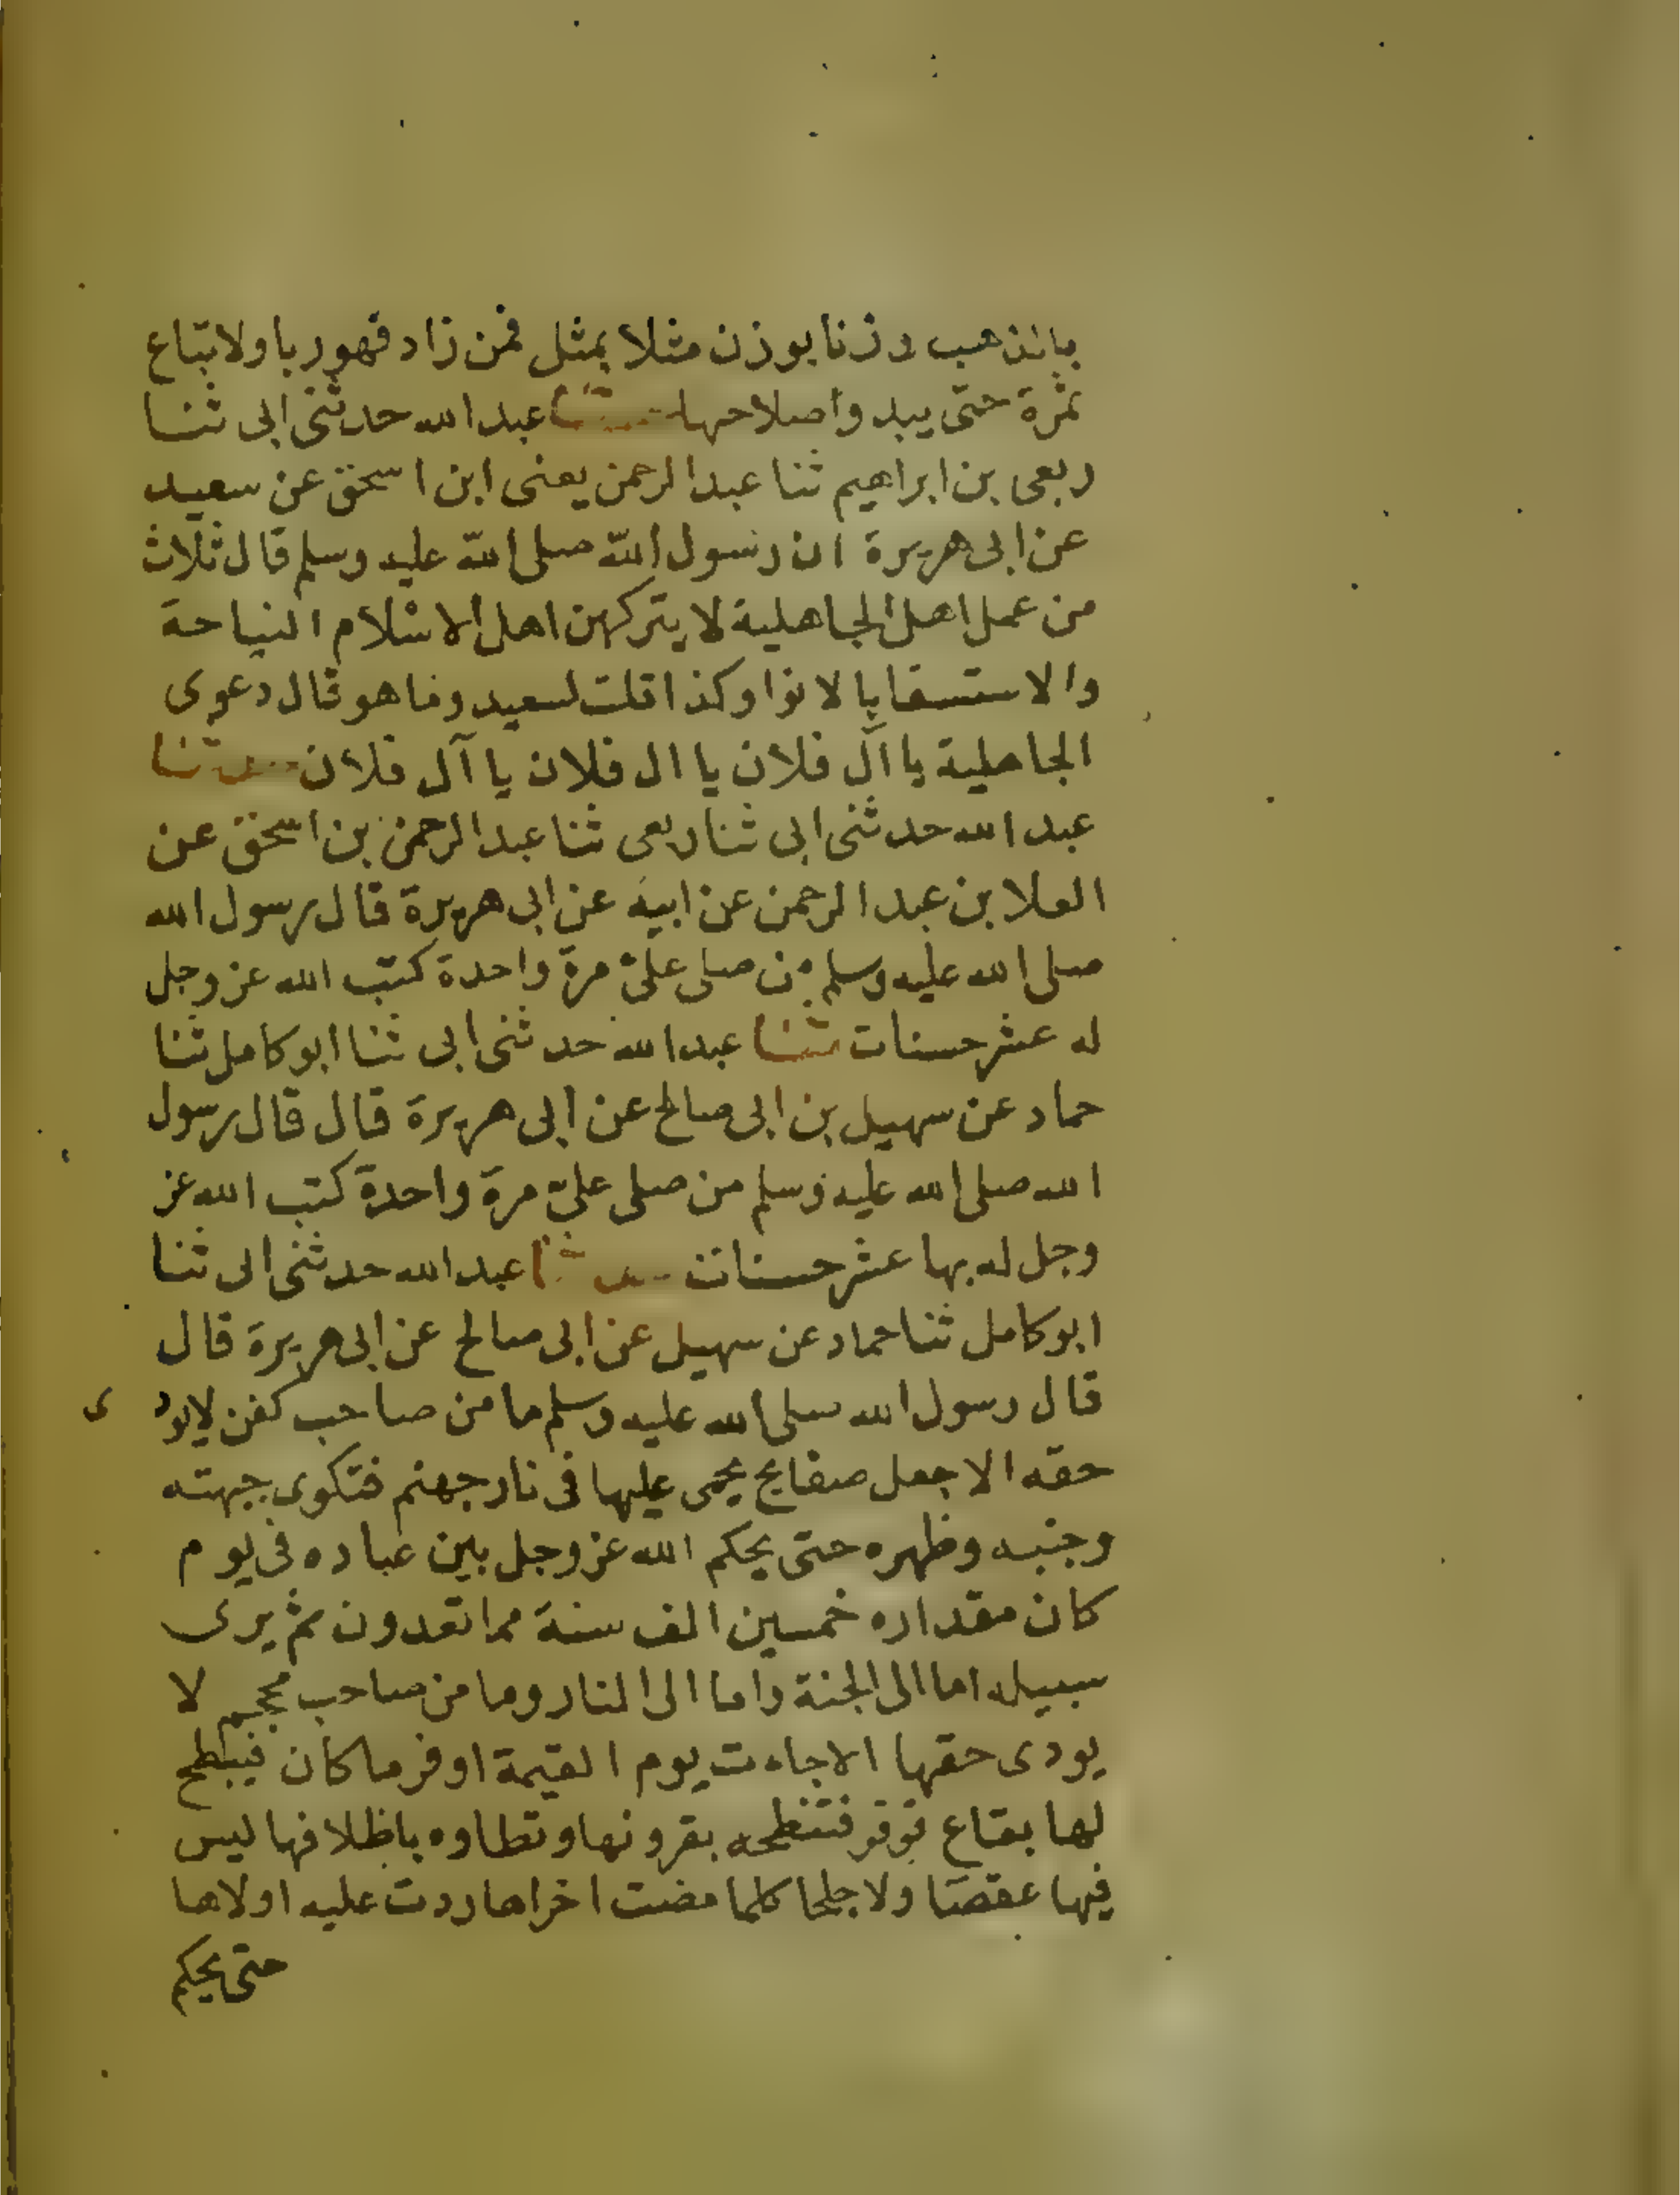 بالذهب وزنا بوزن مثلا بمثل فمن زاد فهو ربا ولا تبتاع
ثمرة حتى يبد واصلاحها حدثنا عبد الله حدثنى ابى ثنا
ربعى بن ابراهيم ثنا عبد الرحمن يعنى ابن اسحق عن سعيد
عن ابى هريرة ان رسول الله صلى الله عليه وسلم قال ثلاث
من عمل اهل الجاهلية لا يتركهن اهل الاسلام النياحة
والاستسقا بالانوا وكذا قلت لسعيد وما هو قال دعوى
الجاهلية يا آل فلان يا ال فلان يا آل فلان حدثنا
عبد الله حدثنى ابى ثنا ربعى ثنا عبد الرحمن بن اسحق عن
العلا بن عبد الرحمن عن ابيه عن ابى هريرة قال رسول الله
صلى الله عليه وسلم من صلى علىّ مرة واحدة كتب الله عز وجل
له عشر حسنات ثنا عبد الله حدثنى ابى ثنا ابو كامل ثنا
حماد عن سهيل بن ابى صالح عن ابى هريرة قال قال رسول
الله صلى الله عليه وسلم من صلى علىّ مرة واحدة كتب الله عز
وجل له بها عشر حسنات حدثنا عبد الله حدثنى ابى ثنا
ابو كامل ثنا حماد عن سهيل عن ابى صالح عن ابى هريرة قال
قال رسول الله صلى الله عليه وسلم ما من صاحب كفن لا يود ى
حقه الا جعل صفايح يحمى عليها فى نار جهنم فتكوى جبهته
وجنبه وظهره حتى يحكم الله عز وجل بين عباده فى يوم
كان مقداره خمسين الف سنة مما تعدون ثم يرى
سبيله اما الى الجنة واما الى النار وما من صاحب لا
يودى حقها الا جاءت يوم القيمة اوفر ما كان فيبطح
لها بقاع قرقر فتنطحه بقرونها وتطاوه باظلافها ليس
فيها عقصا ولا جلحا كلما مضت اخراها ردت عليه اولاها
حتى يحكم